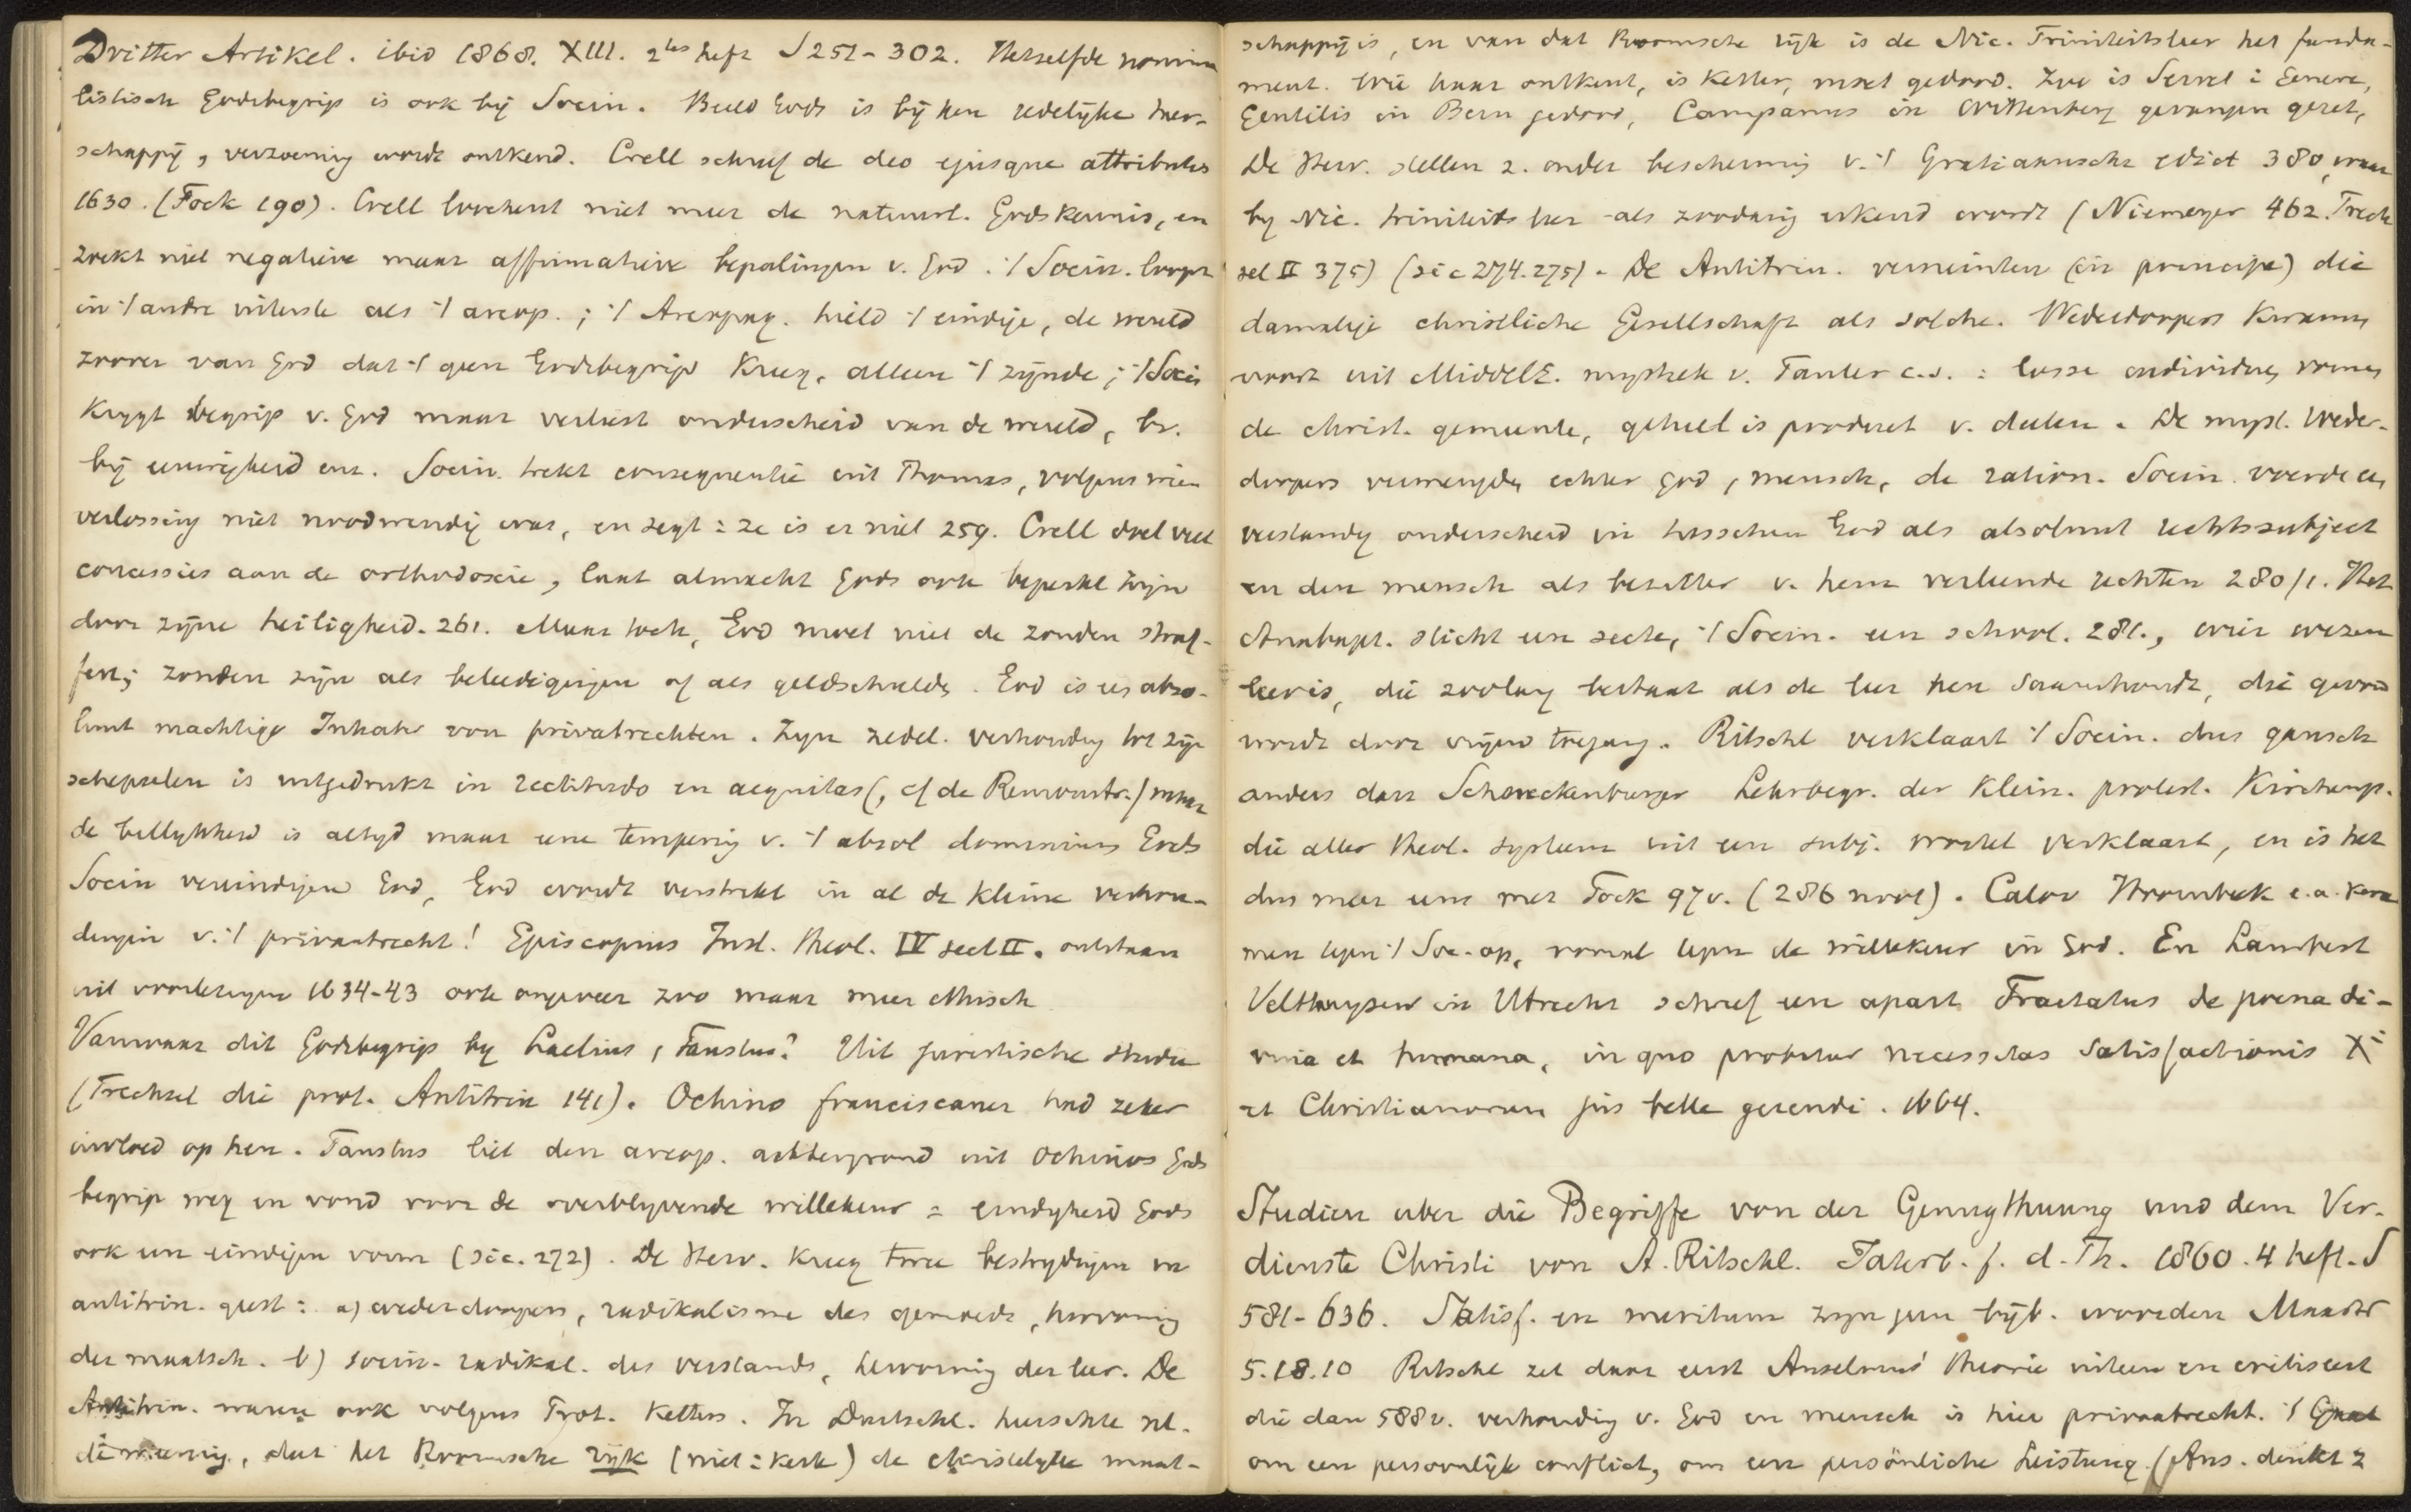 Dritter Artikel. ibid 1868. XIII. 2tes heft S 251-302. Hetzelfde nomina
listisch Godsbegrip is ook bij Socin. Beeld Gods is bij hen zedelijke heer-
schappij, verzoening wordt ontkend. Crell schreef de deo ejusque attributis
1630. (Fock 190). Crell loochent niet meer de natuurl. Godskennis, en
zoekt niet negatieve maar affirmatieve bepalingen v. God. ·/· Socin. loopt
in ·/· andre uiterste als ·/· areop.; ·/· Areopag. hield ·/· eindige, de wereld
zoover van God dat ·/· geen Godsbegrip kreeg, alleen ·/· zijnde; ·/· Socin
krygt begrip v. God maar verliest onderscheid van de wereld, bv.
bij eeuwigheid enz. Socin. trekt consequentie uit Thomas, volgens wien
verlossing niet noodwendig was, en zegt: ze is er niet 259. Crell doet veel
concessies aan de orthodoxie, laat almacht Gods ook beperkt zijn
door zijne heiligheid. 261. Maar toch, God moet niet de zonden straf-
fen; zonden zijn als beleedigingen of als geldschulds. God is us abso-
luut machtige Inhaber von privatrechten. Zijn zedel. verhouding tot zijn
schepselen is uitgedrukt in rectitudo en aequitas (, cf de Remonstr.) maar
de billykheid is altyd maar eene tempering v. ·/· absol dominium Gods
Socin vereindigen God, God wordt verstrikt in al de kleine verhou-
dingen v. ·/· privaatrecht! Episcopius Inst. theol. IV sect II. ontstaan
uit voorlezingen 1634-43 ook ongeveer zoo maar meer ethisch
Vanwaar dit Godsbegrip by Laelius, Faustus? Uit juristische studie
(Trechsel die prot. Antitrin 141). Ochino franciscaner had zeker
invloed op hen. Faustus liet den areop. achtergrond uit Ochinos Gods
begrip weg en vond voor de overblyvende willekeur = eindigheid Gods
ook een eindigen vorm (sic. 272). De Herv. kreeg twee bestrydingen in
antitrin. quest: a) wederdoopers, radikalisme des gemoeds, hervorming
der maatsch. b) socin. radikal. des verstands, hervorming der leer. De
Antitrin. waren ook volgens Prot. ketters. In Duitschl. heerschte nl.
de meening, dat het Roomsche rijk (niet = kerk) de christelyke maat-
schappij is, en van dat Roomsche rijk is de Nic. Triniteitsleer het funda-
ment. Wie haar ontkent, is ketter, moet gedood. Zoo is Servet i Geneve,
Gentilis in Bern gedood, Campanus in Wittenberg gevangen gezet,
De Herv. stellen z. onder bescherming v. ·/· Gratiaansche edict 380, waar
by Nic. triniteits leer als zoodanig erkend wordt (Niemeyer 462. Trech
sel II 375) (sic 274.275). De Antitrin. verneinten (in principe) die
damalige christliche Gesellschaft als solche. Wederdoopers kwamen
voort uit MiddelE. mystiek v. Tauler c.s.: losse individuen vormen
de christ. gemeente, geheel is product v. deelen. De myst. Weder-
doopers vermengden echter God, mensch, de ration. Socin. voerde een
verstandig onderscheid in tusschen God als absoluut rechtssubject
en den mensch als bezitter v. hem verleende rechten 280/1. Het
Anabapt. sticht een secte, ·/· Socin. een school. 281., wier wezen
leer is, die zoolang bestaat als de leer hen saamhoudt, die gevoed
wordt door vrijen toegang. Ritschl verklaart ·/· Socin. dus gansch
anders dan Schneckenburger Lehrbegr. der klein. protest. Kirchenp.
die aller theol. systeem uit een subj. wortel verklaart, en is het
dus meer eens met Fock 97v. (286 noot). Calov Hoornbeek e.a. kwa
men tegen ·/· Soc. op, vooral tegen de willekeur in God. En Lambert
Velthuysen in Utrecht schreef een apart Tractatus de poena di-
vina et humana, in quo probatur necessitas satisfactionis Xi
et Christianorum jus belle gerendi. 1664.
Studien uber die Begriffe von der Genugthuung und dem Ver-
dienste Christi von A. Ritschl. Jahrb. f. d. Th. 1860. 4 heft. S
581-636. Satisf. en meritum zijn geen bijb. woorden Maar
5.18.10 Ritschl zet daar eerst Anselmus' theorie uiteen en critiseert
die dan 588v. verhouding v. God en mensch is hier privaatrecht. ·/· Gaat
om een persoonlijk conflict, om eene persönliche Leistung. (Ans. denkt z